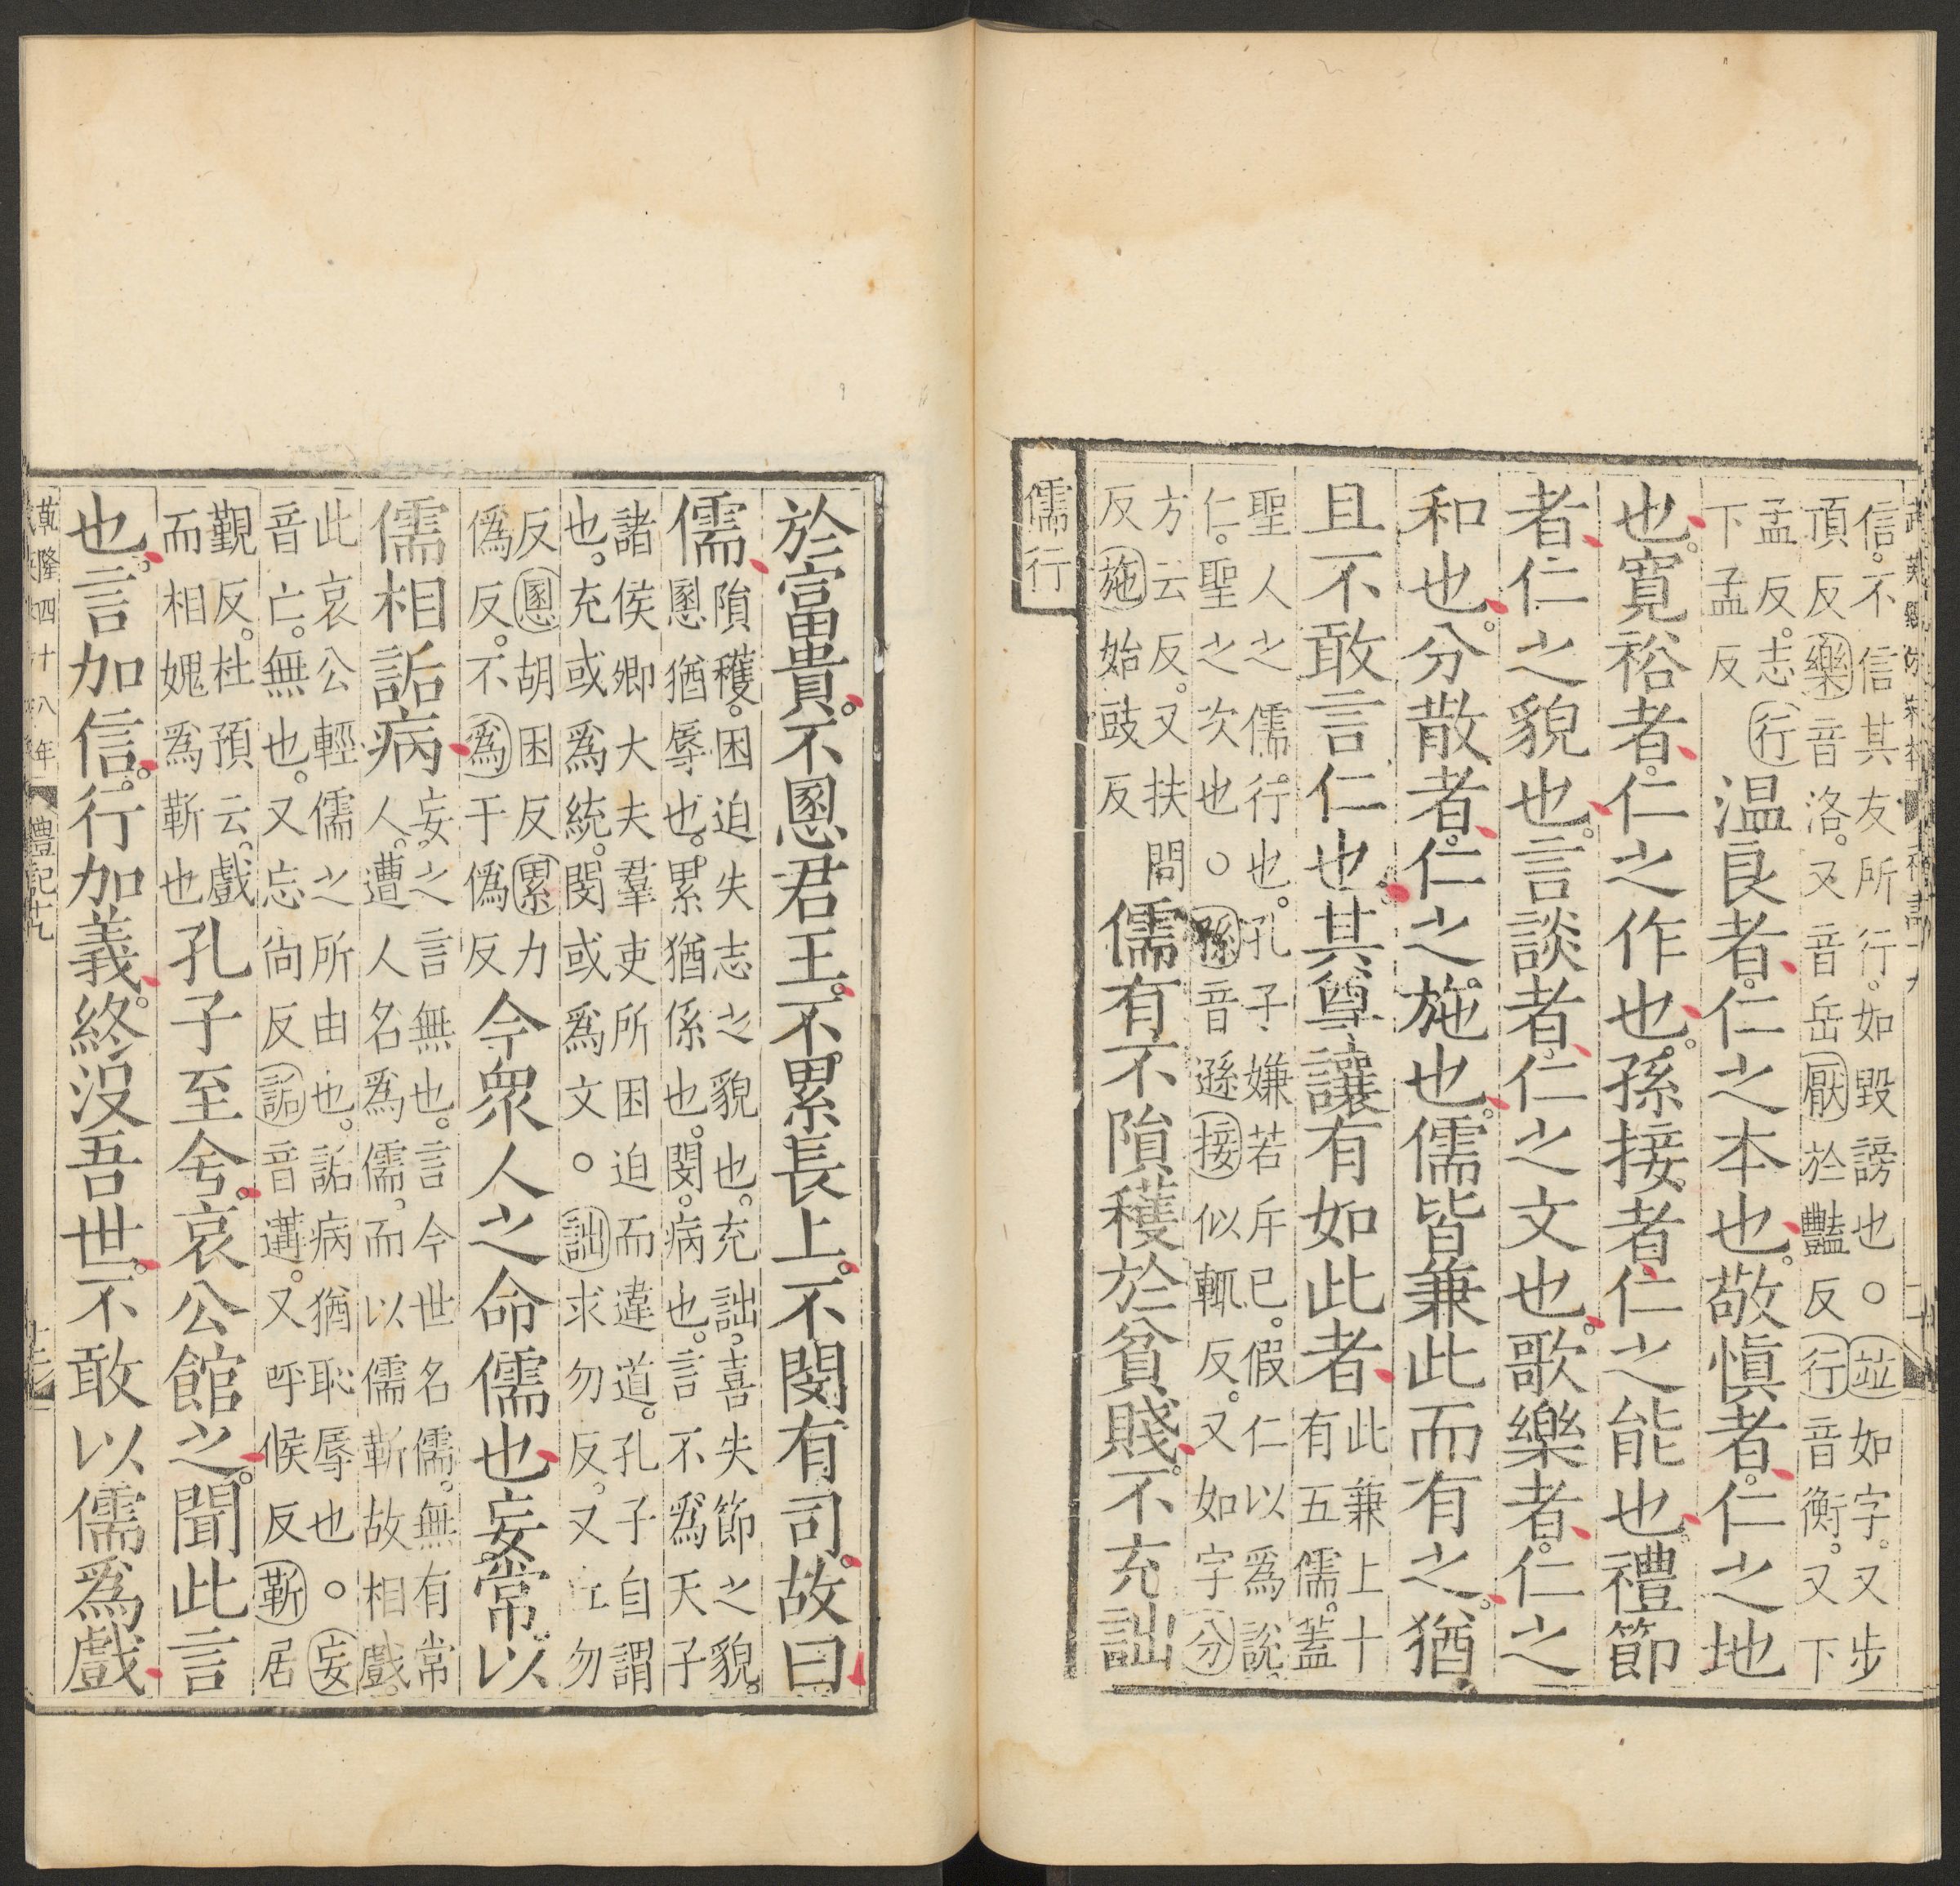 信。不信其友所行。如毀謗也。○竝如字。又步
頂反樂音洛。又音岳厭於豔反行音衡。又下
孟反。志行
下孟反
温良者。仁之本也。敬慎者。仁之地
也。寬裕者。仁之作也。孫接者。仁之能也。禮節
者。仁之貌也。言談者。仁之文也。歌樂者。仁之
和也。分散者。仁之施也。儒皆兼此而有之。猶
且不敢言仁也。其尊讓有如此者。
此兼上十
有五儒。蓋
聖人之儒行也。孔子嫌若斥已。假仁以爲說。
仁。聖之次也○孫音遜接似輒反。又如字分
方云反。又扶問
反施始豉反
儒有不隕穫於貧賤。不充詘
儒行
於富貴。不慁君王。不累長上。不閔有司。故曰
儒。
隕穫。困迫失志之貌也。充詘。喜失節之貌。
慁猶辱也。累猶係也。閔。病也。言不爲天子
諸侯卿大夫羣吏所困迫而違道。孔子自謂
也。充或爲統。閔或爲文○詘求勿反。又丘勿
反慁胡困反累力
僞反。不爲于僞反
今衆人之命儒也妄。常以
儒相詬病。
妄之言無也。言今世名儒。無有常
人。遭人名爲儒。而以儒靳故相戲。
此哀公輕儒之所由也。詬病猶恥辱也○妄
音亡。無也。又忘尚反詬音遘。又呼候反靳居
覲反。杜預云。戲
而相媿爲靳也
孔子至舍。哀公館之。聞此言
也。言加信。行加義。終沒吾世。不敢以儒爲戲
乾隆四十八年
禮記